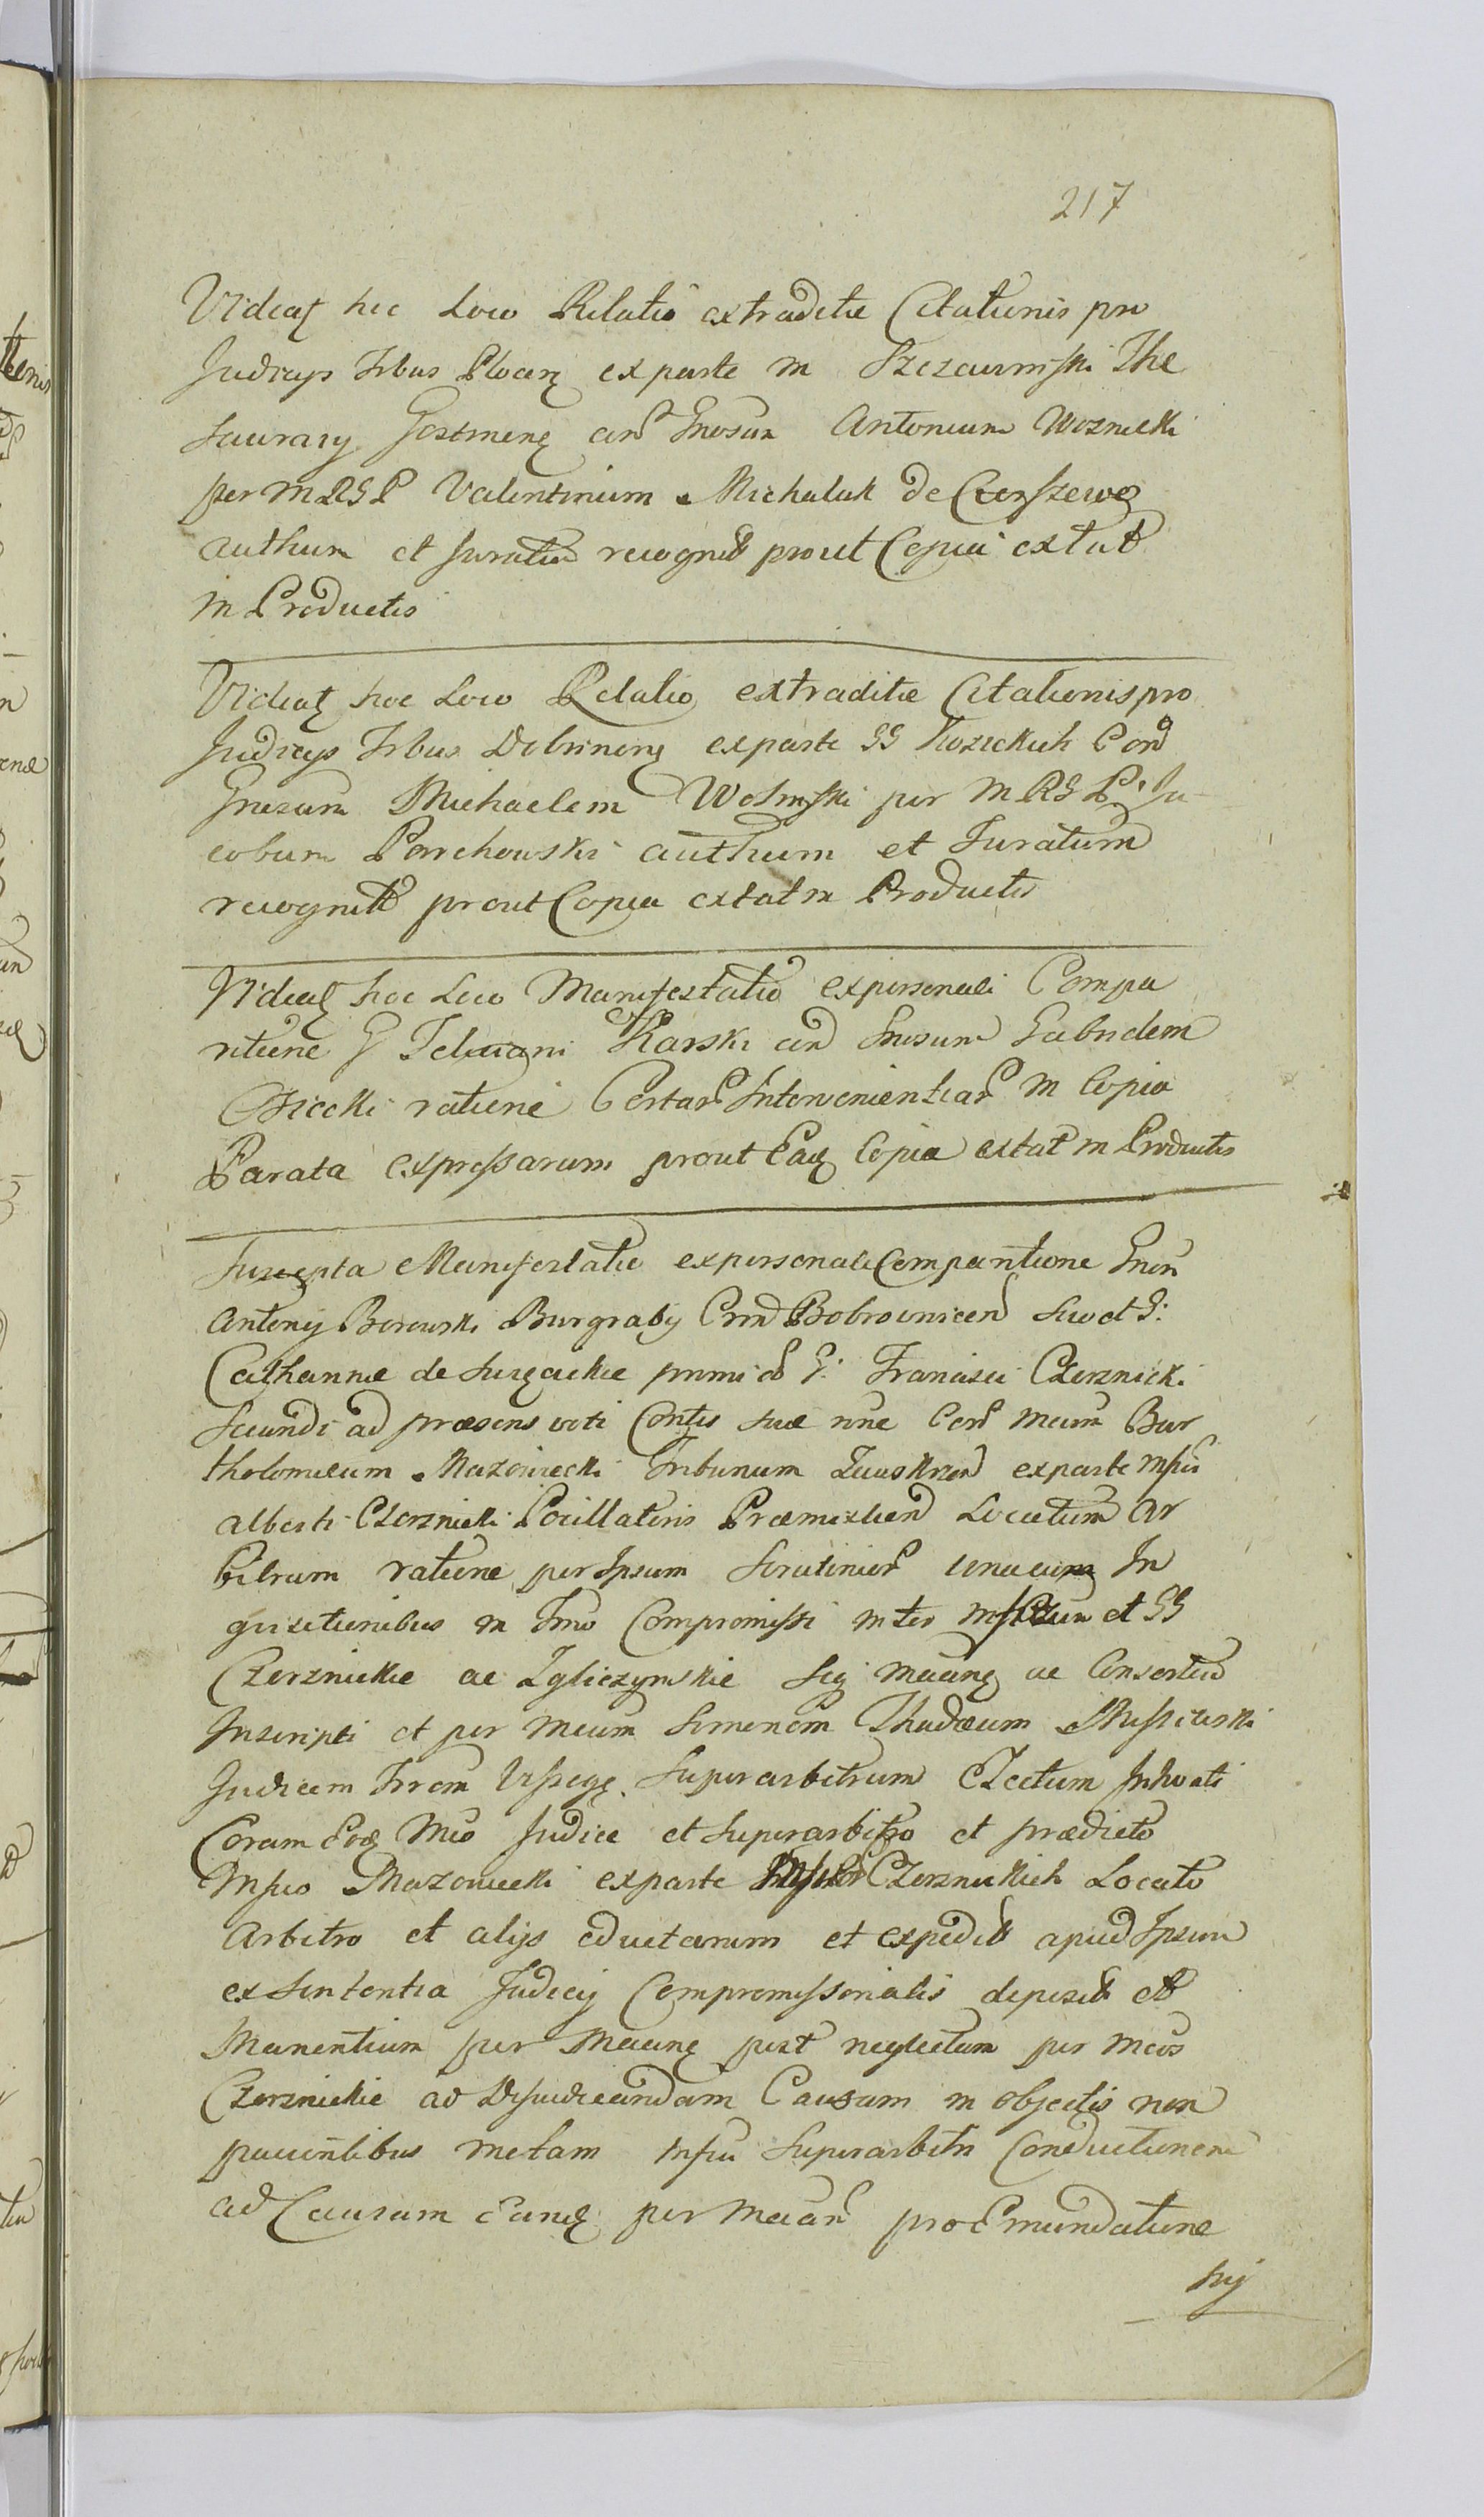 217
Videaʒ hic Loco Relatio extraditæ Citationis pro
Judicys Trbus Plocen exparte M Szczawinski The
saurary Gostinen con Gnosum Antonium Woznicki
per MRGP Valentinum Michalak de Czerszewo
authum et Juratum recognit prout Copia extat
in Productis
Videaʒ hoc Loco Relatio extraditæ Citationis pro
Judicys Trbus Dobrinen exparte GG Kozickich Con
Gnosum Michaelem Wolinski per MRGP Ja-
cobum Parchowski authum et Juratum
recognit prout Copia extat in Productis
Videaʒ hoc Loco Manifestatio expersonali Compa
ritione G Feliciani Karski con Gnosum Gabrielem
Osiecki ratione Certar Intervenientiar in Copia
Parata expressarum prout Eaq Copia extat in Productis
Suscepta Manifestatio expersonali Comparitione Gnon
Antony Borowski Burgraby Crn Bobrovnicen suo et G:
Catharinæ de primi G: Francisci Czerznicki
secundi ad præsens voti Contis suæ nne Con Mcum Bar
tholomeum Mazowiecki Tribunum exparte Mfici
Alberti Czerznicki Pocillatoris Præmislien Locatum Ar
bitrum ratione per Ipsum Scrutinior unacum In
quisitionibus in Tmo Compromissi inter et GG
Czerznickie ac Zgliczynskie sey ac Consortem
Inscripti et per Mcum Simonem Thadæum
Judicem Trrem Superarbitrum Electum Inhvati
Coram Eoq Mco Judice et Superarbitro et prædicto
Mfico Mazowiecki exparte Czerznickich Locato
Arbitro et alys eductarum et expedit apud Ipsum
ex Sententia Judicij Compromissorialis deposit et
Manentium per post neglectum per Mcos
Czerznickie ad Dijudicandam Causam in objectis non
metam Mfici Superarbitri Conductionem
ad Causam Eanq per pro Emundatione
sui